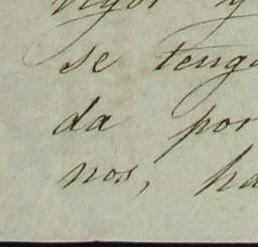 vigor y
se tenga
da por
nos, ha